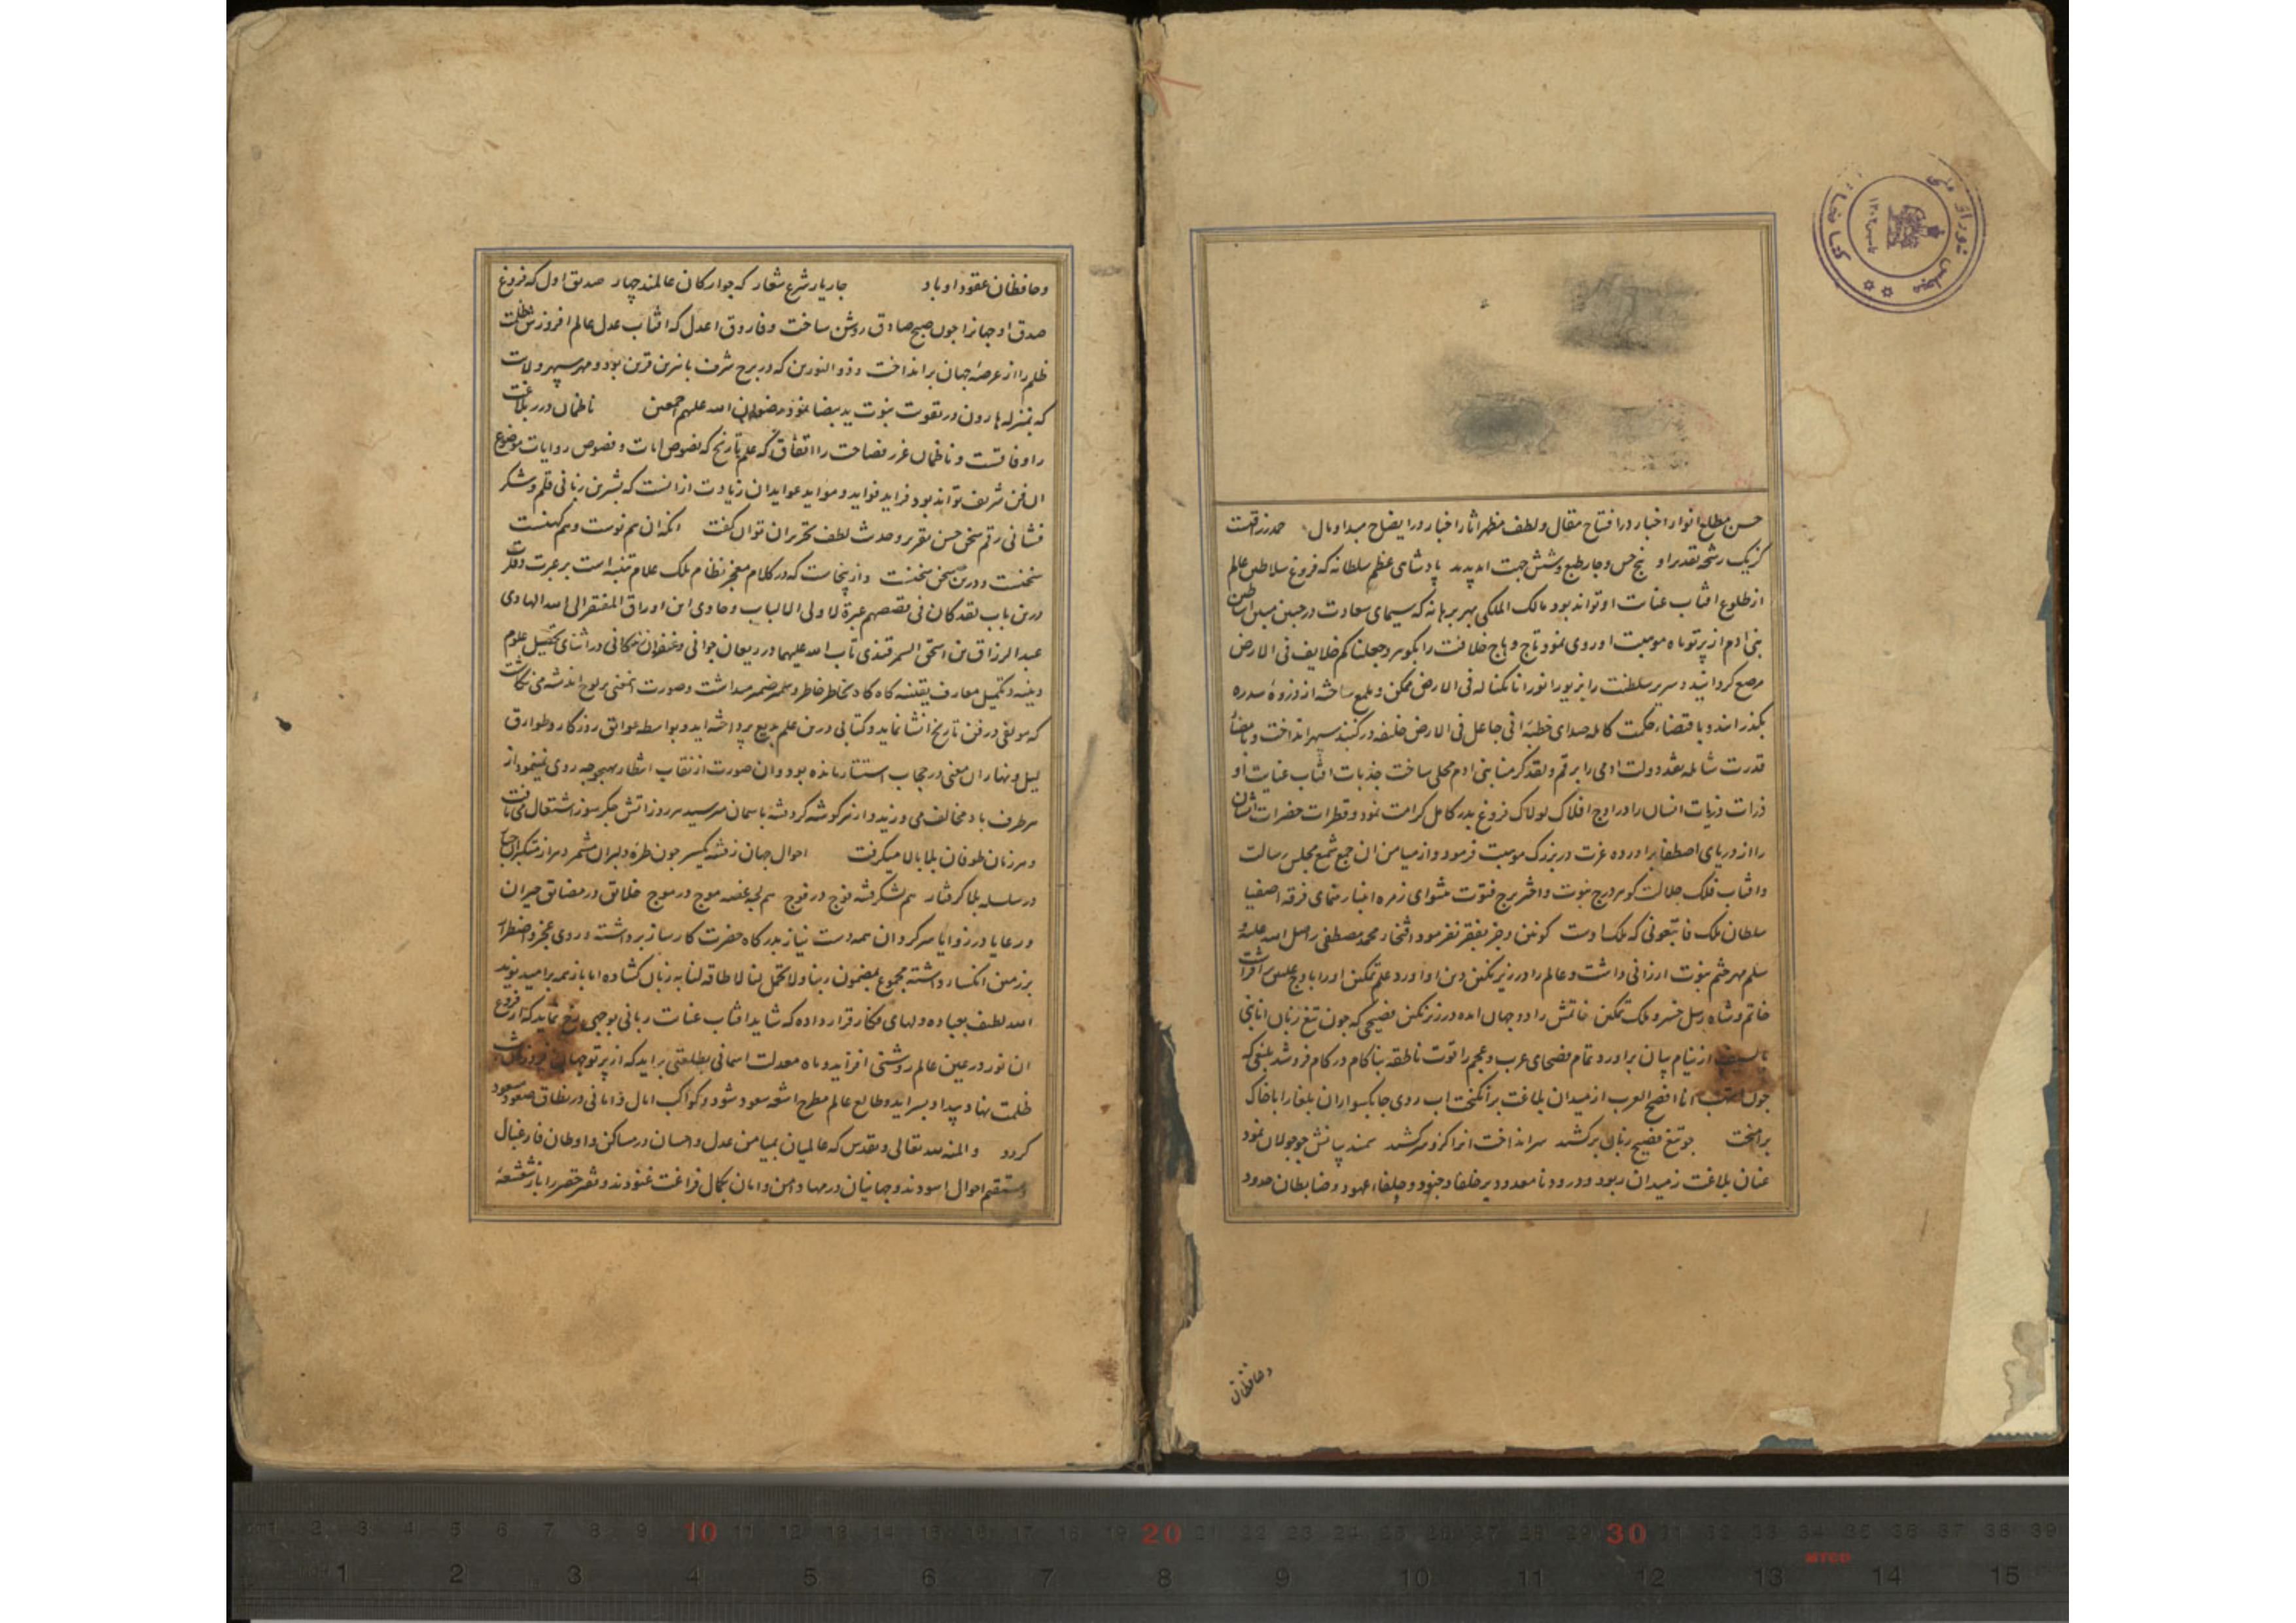 حسن مطلع انوار اخبار در افتتاح مقال و لطف مظهر اثار اخبار در ایضاح مبدا و مال حمد رزاقیست
کز یک رشحه تقدیر او پنج حس و چار طبع و شش جهت امد پدید پادشاهی عظم سلطانه که فروغ سلاطین عالم
از طلوع افتاب عنایت او تواند بود مالک الملکی بهر برهانه که سیمای سعادت در جبین مبین اساطین
بنی ادم از پرتو ماه موهبت او روی نمود تاج وهاج خلافت را بگوهر و جعلناکم خلایف فی الارض
مرصع گردانید و سریر سلطنت را بزیور انور انا مکنا له فی الارض ممکن و ملمع ساخته از ذروهٔ سدره
بگذرانید و باقتضاء حکمت کامله صدای خطبهٔ انی جاعل فی الارض خلیفه در گنبد سپهر انداخت و بامضاء
قدرت شامله نقد دولت ادمی را برقم و لقد کرمنا بنی ادم محلی ساخت جذبات افتاب عنایت او
ذرات ذریات انسان را در اوج افلاک لولاک فروغ بدر کامل کرامت نمود و قطرات حضرات ایشان
را از دریای اصطفا براورده عزت در بزرگ موهبت فرمود و از میامن ان جمع شمع مجلس رسالت
و افتاب فلک جلالت گوهر درج نبوت و اختر برج فتوت پیشوای زمره اخیار مقتدای فرقه اصفیا
سلطان ملک فاتبعونی که ملک اوست کونین و جز بفقر نفرمود افتخار محمد مصطفی را صلی الله علیه و
سلم مهر ختم نبوت ارزانی داشت و عالم را در زیر نگین دین او اورد و علم تمکین او را باوج علیین برافراشت
خاتم و شاه رسل خسرو ملک تمکین خاتمش را دو جهان امده در زیر نگین فصیحی که چون تیغ زبان انا نبی
بالسیف از نیام بیان براورد تمام فصحای عرب و عجم را قوت ناطقه بناکام در کام فروشد بلیغی که
چون انا افصح العرب از میدان بلاغت برانگیخت اب روی چابکسواران بلغا را با خاک
برامیخت چو تیغ فصیح زبان برکشد سر انداخت انرا کزو سر کشد سمند بیانش چو جولان نمود
عنان بلاغت ز میدان ربود و درود نامعدود بر خلفاء جنود و حلفاء عهود و ضابطان حدود
وحافظان
وحافظان عقود او باد چار یار شرع شعار که چو ارکان عالمند چهار صدیق اول که فروغ
صدق او جهانرا چون صبح صادق روشن ساخت و فاروق اعدل که افتاب عدل عالم افروزش ظلمت
ظلم را از عرصهٔ جهان برانداخت و ذو النورین که در برج شرف با نیرین قرین بود و مهر سپهر ولایت
که بمنزله هارون در تقویت نبوت ید بیضا نمود رضوان الله علیهم اجمعین ناظمان درر بلاغت
را وفاقست و ناظمان غرر فصاحت را اتفاق که علم تاریخ که نصوص ایات و فصوص روایات موضوع
ان فن شریف تواند بود فراید فواید و مواید عواید ان زیادت از انست که بشیرین زبانی قلم و شکر
فشانی رقم سخن حسن تقریر و حدیث لطف تحریر ان توان گفت انکه ان هم نوست و هم کهنست
سخنست و درین سخن سخنست و از ینجاست که در کلام معجز نظام ملک علام تنبیه است بر عبرت و فکرت
درین باب لقد کان فی قصصهم عبرة لاولی الالباب و حاوی این اوراق المفتقر الی الله الهادی
عبد الرزاق بن اسحق السمرقندی تاب الله علیهما در ریعان جوانی و عنفوان زندگانی در اثنای تحصیل علوم
دینیه و تکمیل معارف یقینیه گاه گاه بخاطر خاطر و سلمه ضمیر میداشت و صورت این معنی بر لوح اندیشه می نگاشت
که مولفی در فن تاریخ انشا نماید و کتابی درین علم بدیع پرداخته اید و بواسطه عوایق روزگار و طوارق
لیل و نهار ان معنی در حجاب استتار مانده بود و ان صورت از نقاب انتظار بهیچوجه روی نمینمود از
هر طرف باد مخالف می وزید و از هر گوشه گرد فتنه باسمان میرسید هر روز اتش جگر سوز اشتعال می یافت
و هر زمان طوفان بلا بالا میگرفت احوال جهان ز فتنه یکسر چون طره دلبران مشمر سرافراز متکبران
در سلسله بلا گرفتار هم لشکر فتنه فوج در فوج هم لجه غصه موج در موج خلایق در مضایق حیران
و رعایا در زوایا سرگردان همه دست نیاز بدرگاه حضرت کارساز برداشته و روی عجز و اضطرار
بر زمین انکسار داشته مجموع بمضمون ربنا ولا تحمل لنا لا طاقه لنا به زبان گشاده اما باز همه بر امید نوید
الله لطیف بعباده دلهای فگار قرار داده که شاید افتاب عنایت ربانی بوجهی رخ نماید که از فروغ
ان نور در عین عالم روشنی افزاید و ماه معدلت اسمانی بطلعتی براید که از پرتو جهان
ظلمت نهاد و بیداد بسراید و طالع عالم مطرح اشعه سعود شود و کواکب امال و امانی در نطاق صعود
گردد و المنه لله تعالی و تقدس که عالمیان بمیامن عدل و احسان در مساکن و اوطان فارغبال
و مستقیم احوال اسودند و جهانیان در مهاد امن و امان بکمال فراغت غنودند